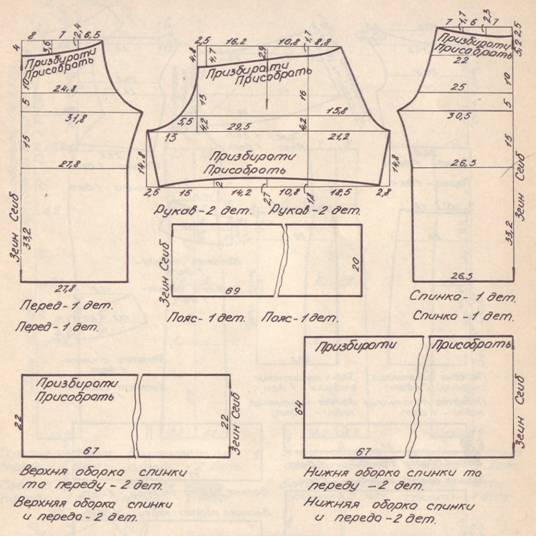 8 7 2,4 6,5
4 3,6
Призбирати
Присобрать
10
24,8
5
31,8
15
27,8
Згин Сгиб
33,2
27,8
Перед-1 дет.
Перед-1 дет.
2,5 16,2 10,8 1,7 8,8
4,8 4,7 2,9
Призбирати
Присобрать
15 16
5,5 4,2 4,2 15,8
15 29,5 21,2
Призбирати
Присобрать
14,8 14,8
2
2,5 15 14,2 10,8 18,5 2,8
Рукав-2 дет. Рукав-2 дет.
7 1,7 7 2,3 7 2,5
Призбирати
Присобрать
5,2
22
10
25
5
30,5
15
26,5
Згин Сгиб
33,2
26,5
Спинка-1 дет.
Спинка-1 дет.
Згин Сгиб
20
69
Пояс-1 дет. Пояс-1 дет.
Призбирати
Присобрать
22 22
Згин Сгиб
67
Верхня оборка спинки
та переду-2 дет.
Верхняя оборка спинки
и переда-2 дет.
Призбирати Присобрать
64
Згин Сгиб
67
Нижня оборка спинки та
переду-2 дет.
Нижняя оборка спинки
и переда-2 дет.